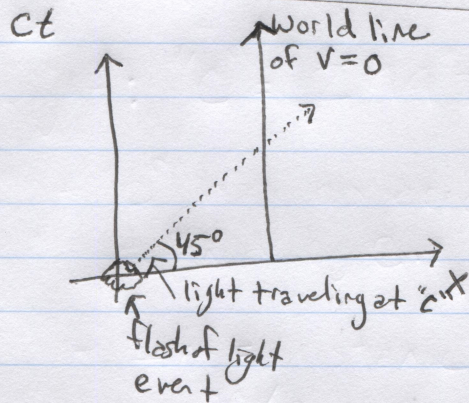 ct
World line
of V=0
45°
light traveling at "c"
x
flash of light
event